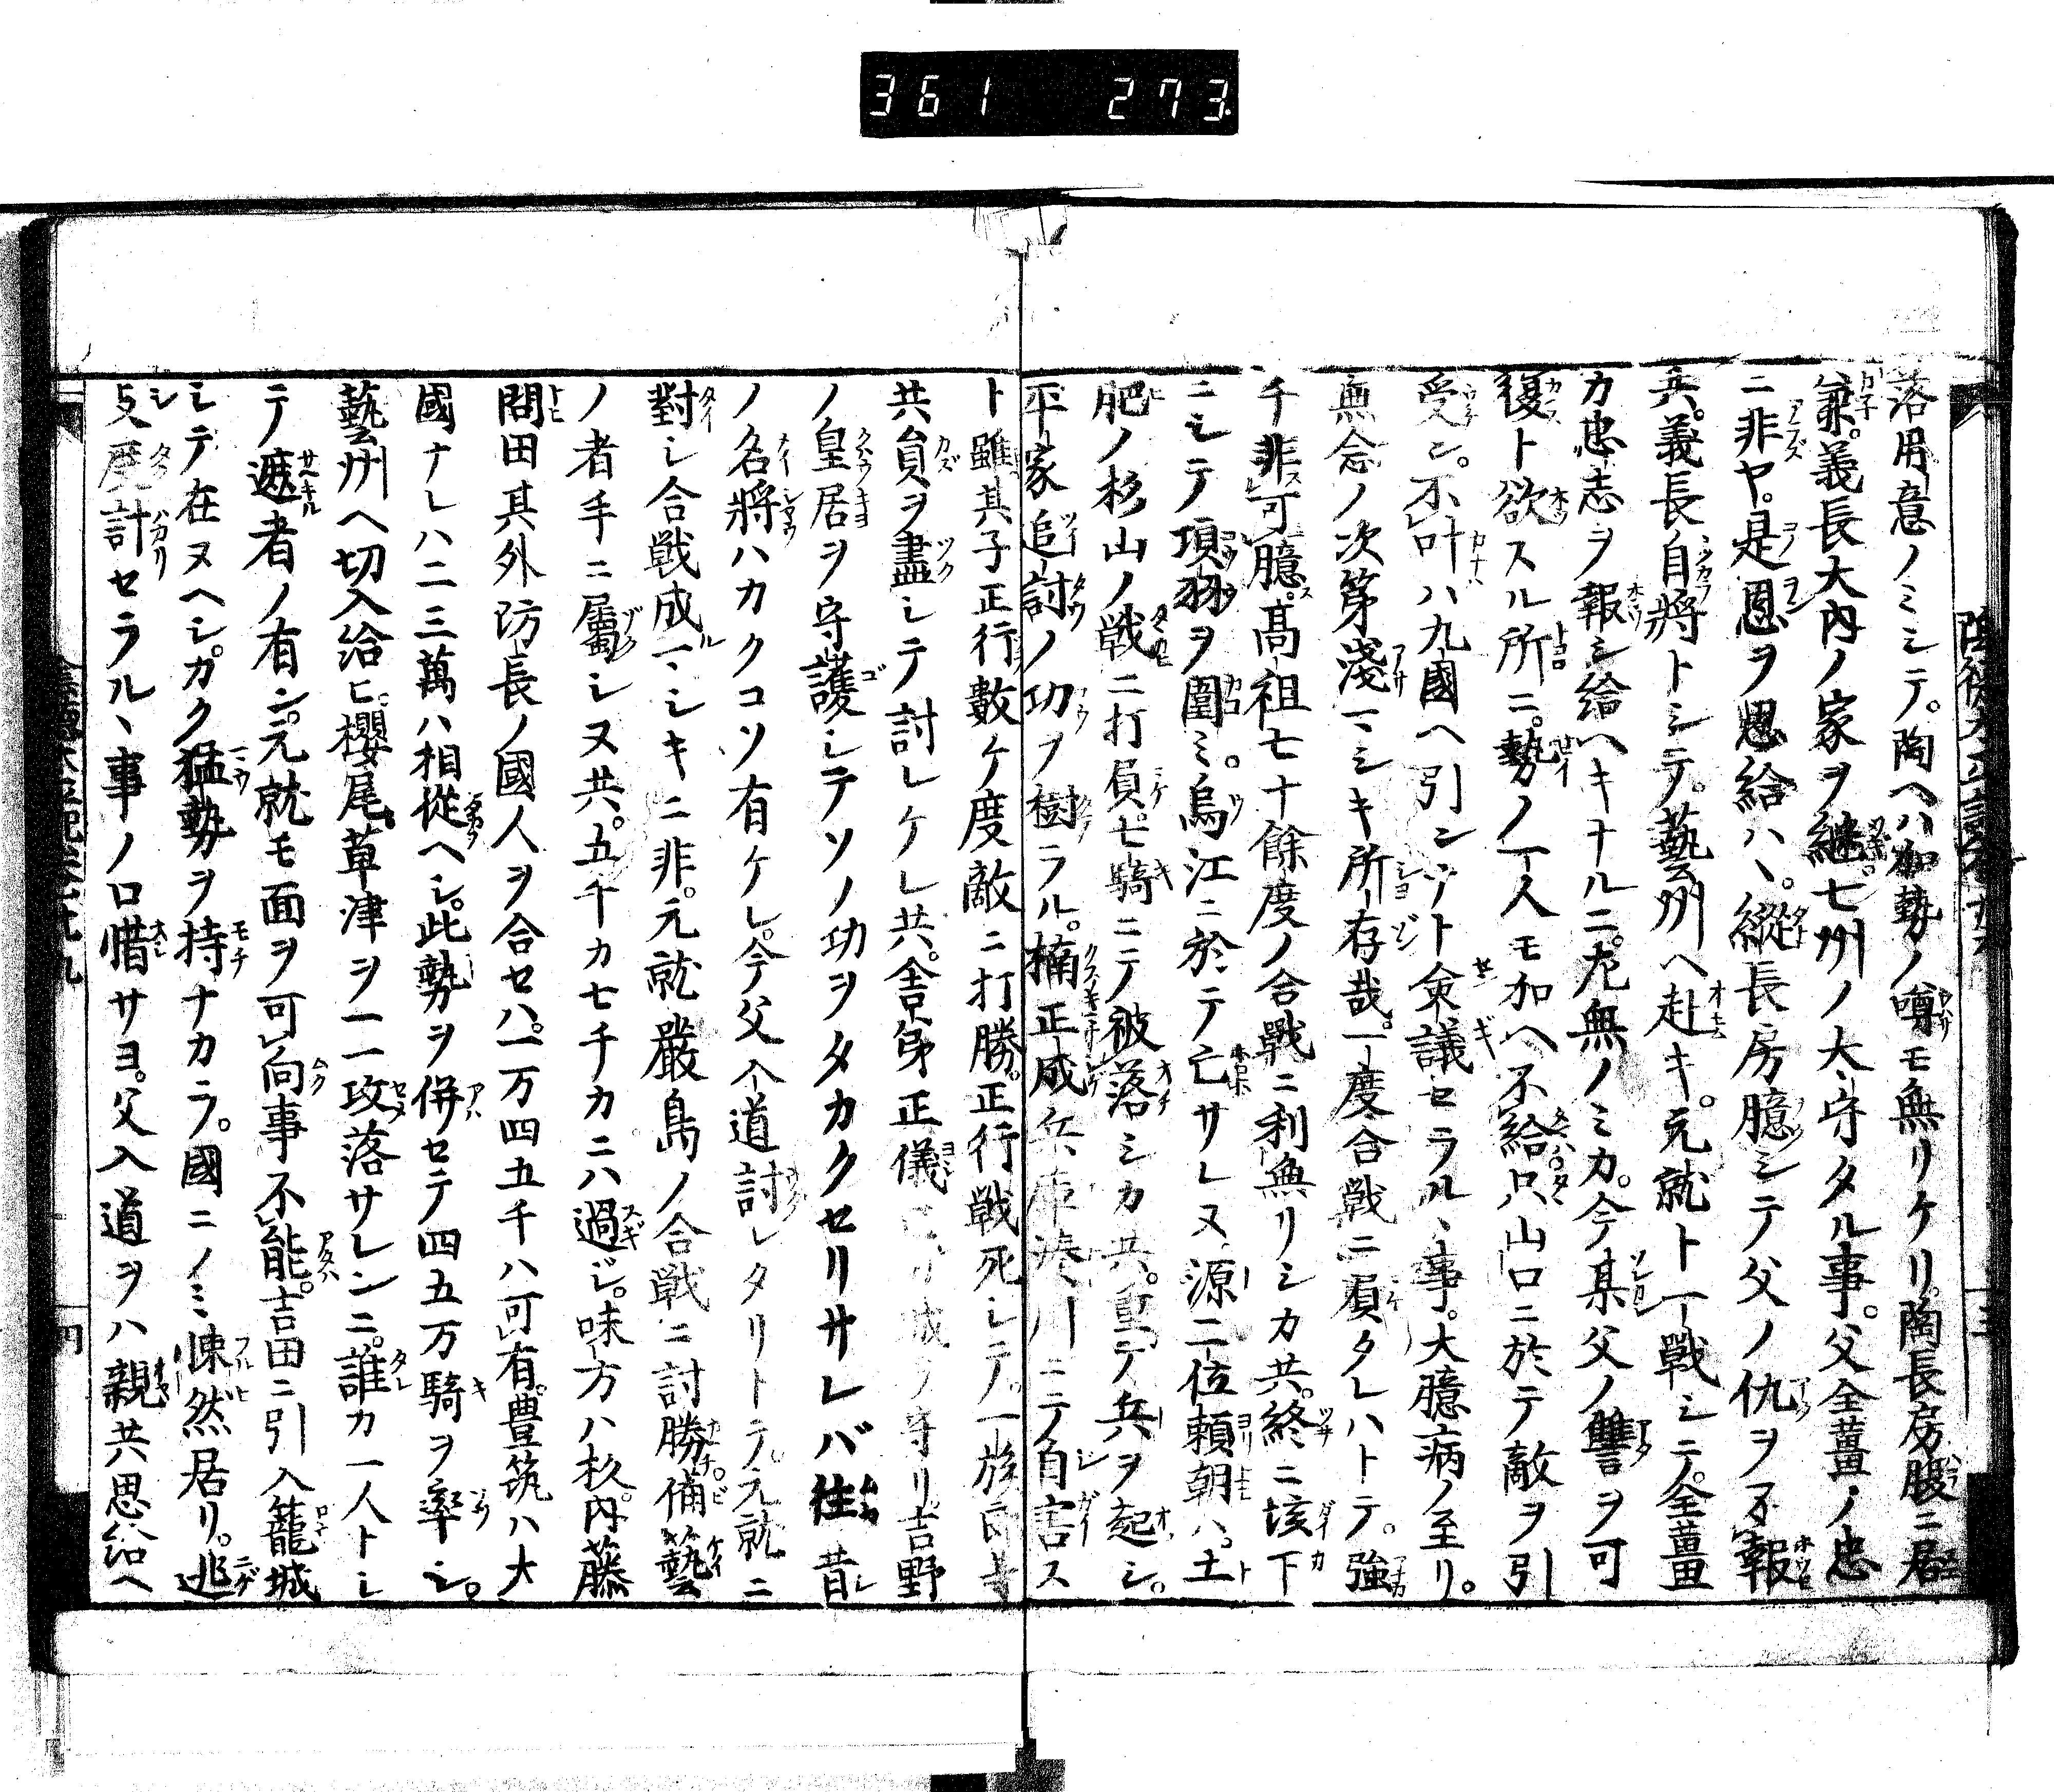 361 273
落用意ノミシテ。陶ヘハ加勢ノ噂モ無リケリ。陶長房腹ニ居
兼。義長大内ノ家ヲ継。七州ノ大守タル事。父全薑ノ忠
ニ非ヤ。是恩ヲ思給ハヽ。縱長房臆シテ父ノ仇ヲ不報
共。義長自將トシテ。藝州ヘ赴キ。元就ト一戰シテ。全薑
カ忠志ヲ報シ給ヘキナルニ。尤無ノミカ。今某父ノ讐ヲ可
復ト欲スル所ニ。勢ノ一人モ加ヘ不給只山口ニ於テ敵ヲ引
受ン。不叶ハ九國ヘ引ンナト僉議セラルヽ事。大臆病ノ至リ。
無念ノ次第淺マシキ所存哉。一度合戰ニ負タレハトテ。強
チ非可臆。髙祖七十餘度ノ合戰ニ利無リシカ共。終ニ垓下
ニシテ項羽ヲ圍ミ。烏江ニ於テ亡サレヌ源二位頼朝ハ。土
肥ノ杉山ノ戰ニ打負。七騎ニテ被落シカ共。重テ兵ヲ起シ。
平家追討ノ功ヲ樹ラル。楠正成兵庫湊川ニテ自害ス
ト雖其子正行數ケ度敵ニ打勝。正行戰死シテ。一族
共員ヲ盡シテ討レケレ共。舎弟正儀 城ヲ守リ。吉野
ノ皇居ヲ守護シテソノ功ヲタカクセリサレバ往昔
ノ名將ハカクコソ有ケレ。今父入道討レタリトテ。元就ニ
對シ合戰成マシキニ非。元就嚴島ノ合戰ニ討勝備藝
ノ者手ニ屬シヌ共。五千カ七千カニハ過ジ。味方ハ杦内藤
問田其外防長ノ國人ヲ合セハ。一万四五千ハ可有。豊筑ハ大
國ナレハ二三萬ハ相從ヘシ。此勢ヲ併セテ四五万騎ヲ率シ。
藝州ヘ切入給ヒ。櫻尾草津ヲ一一攻落サレンニ。誰カ一人トシ
テ遮者ノ有ン。元就モ面ヲ可向事不能。吉田ニ引入籠城
シテ在ヌヘシ。カク猛勢ヲ持ナカラ。國ニノミ悚然居リ。逃
支度計セラルヽ事ノ口惜サヨ。父入道ヲハ親共思給ヘ